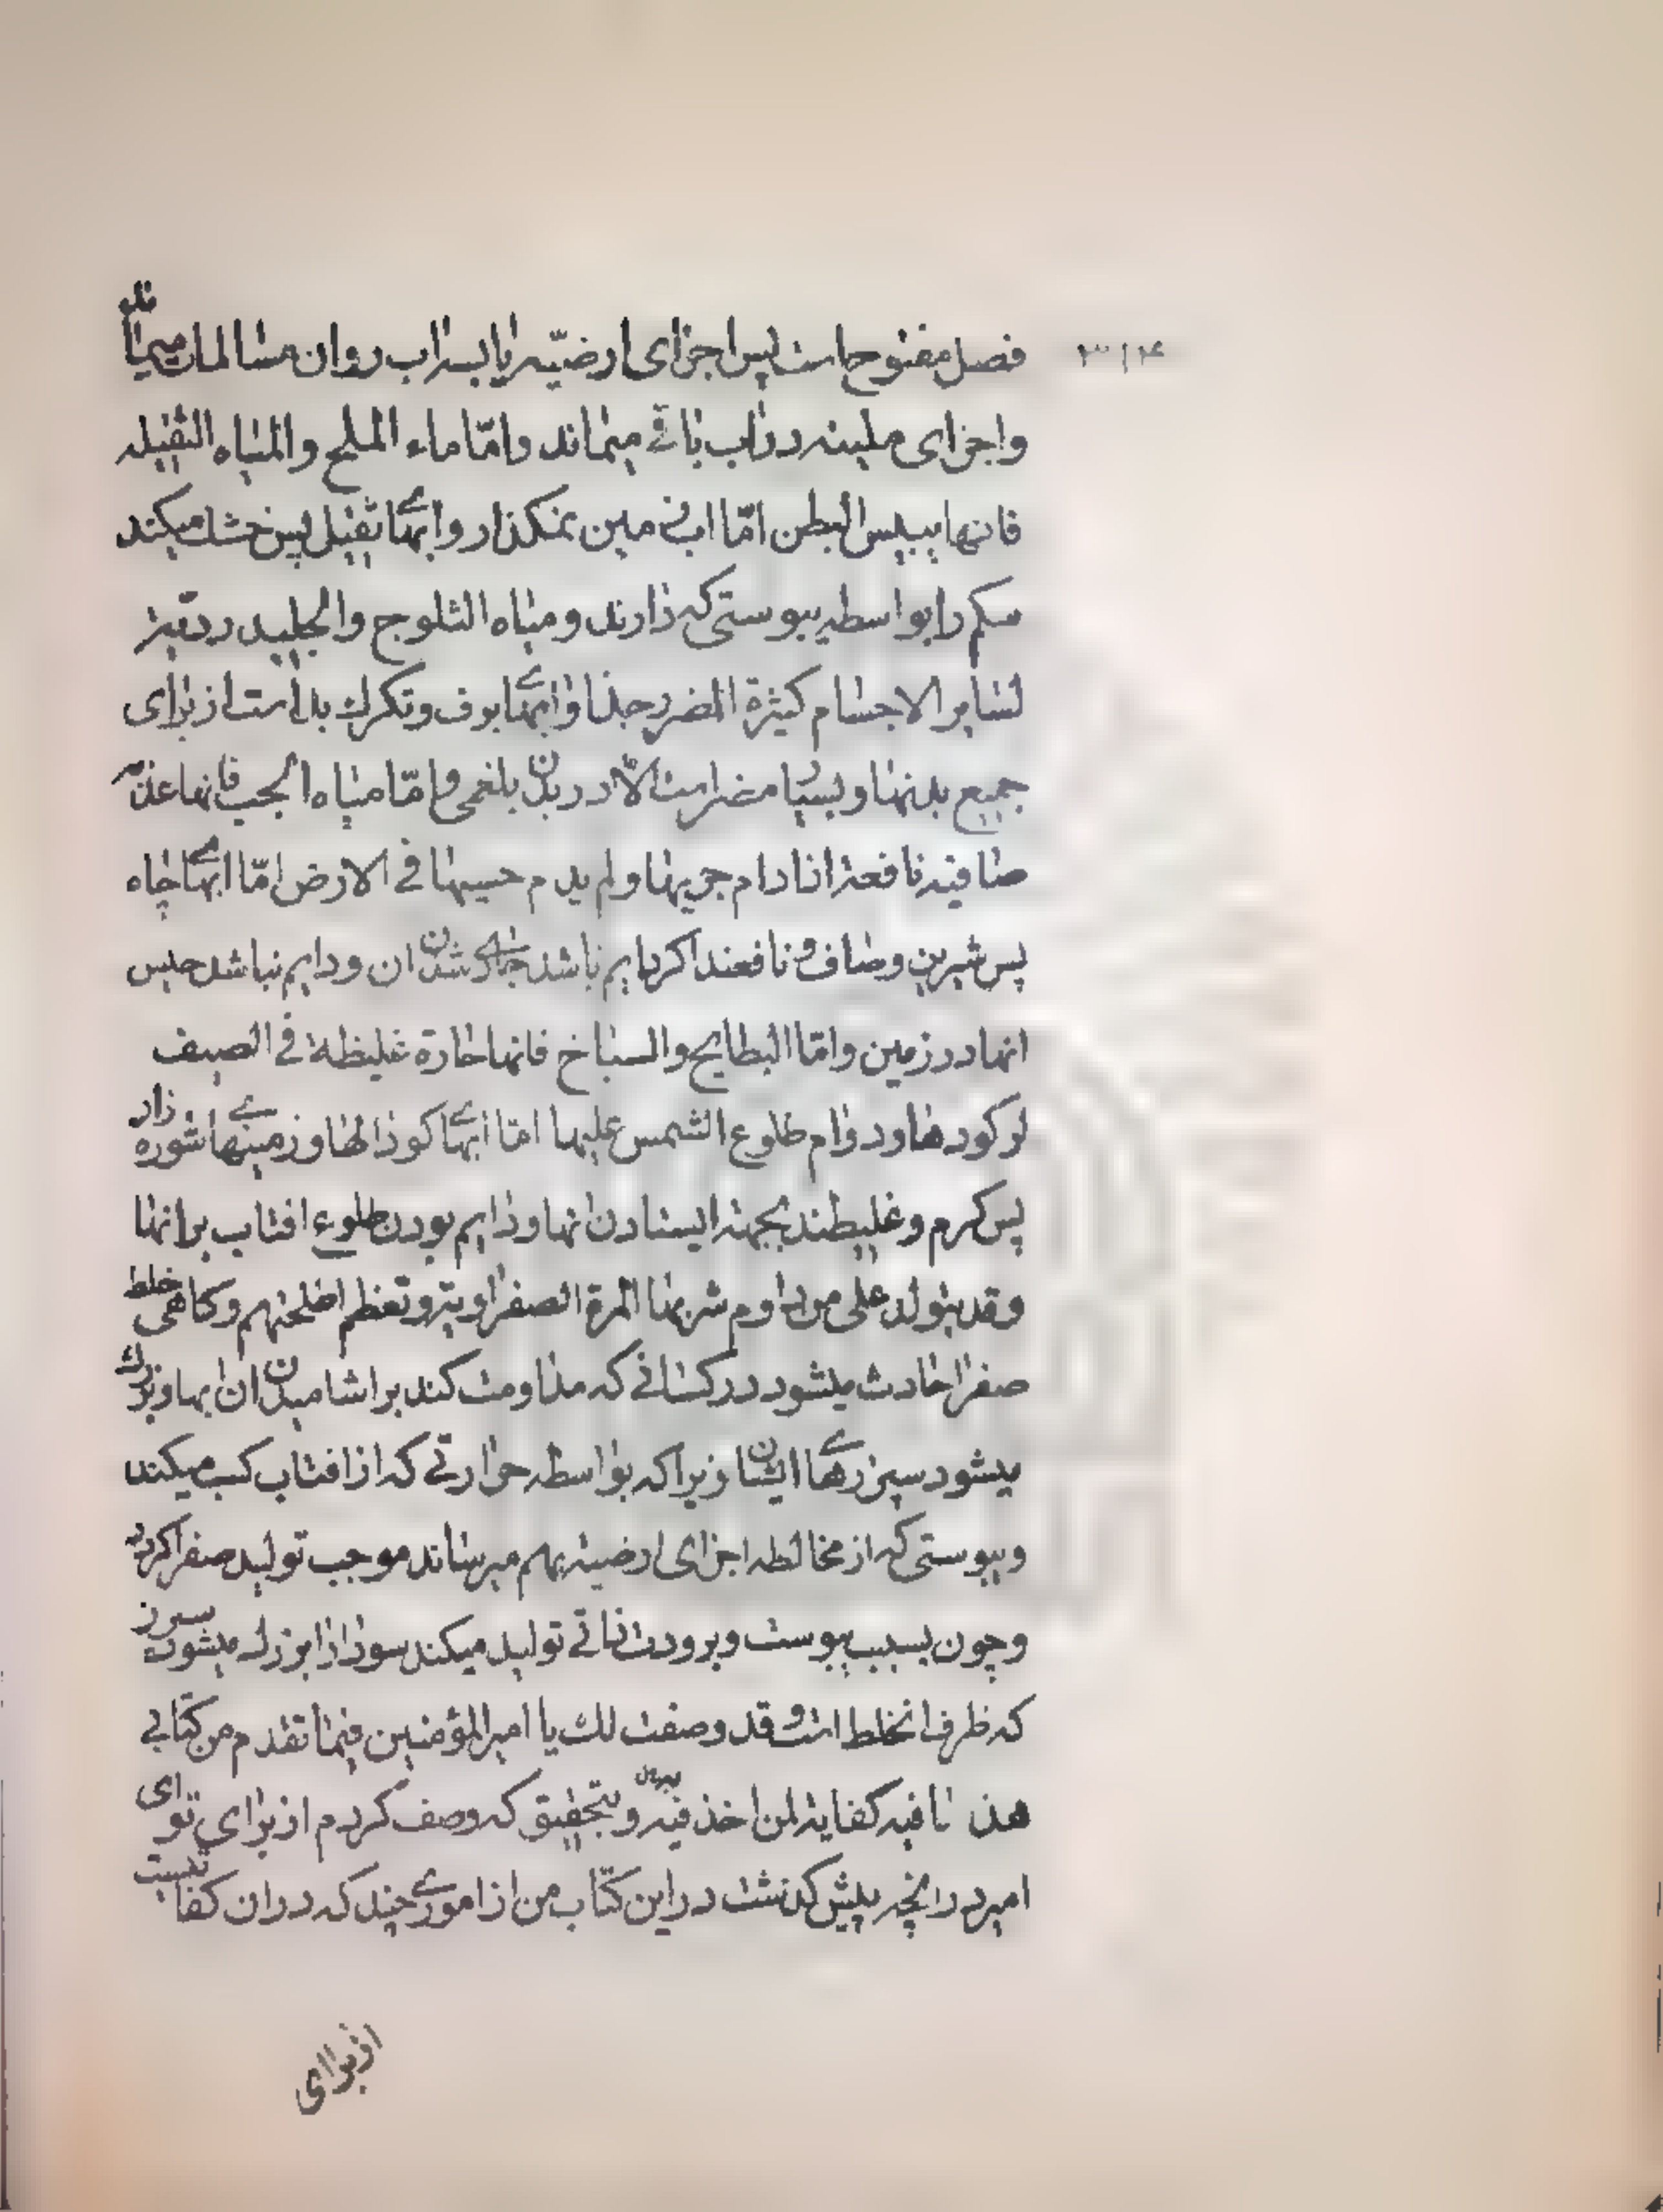 ۳۱۴
فصل مفتوح است پس اجزای ارضیه را با بسراب روان مسالمات میماند
واجزای ملینه در آب باقی میماند وامّا ماء الملح والمیاه الثقیله
فانها ییبس البطن امّا آب نمکین نمکزار وآبهای ثقیل پس خشك میکند
شکم را بواسطه یبوستی که دارند ومیاه الثلوج والجلید ردیّة
لسایر الاجسام کثیرة الضرر جدّا وآبهای برف وتگرك بد است از برای
جمیع بدنها وبسیار مضر است الّا در بدن بلغمی وامّا میاه الجب فانها عذبة
صافیة نافعة اذا دام جریها ولم یدم حبسها فی الارض امّا آبهای چاه
پس شیرین وصاف ونافعند اکر دایم باشد جاری شدن آن ودایم نباشد حبس
آنها در زمین وامّا البطایح والسباخ فانها حارة غلیظة فی الصیف
لرکودها ودوام طلوع الشمس علیها امّا آبهای کودالها وزمینهای شوره زار
پس کرم وغلیظند بجهة ایستادن آنها ودایم بودن طلوع آفتاب بر آنها
وقد یتولد علی من داوم شربها المرة الصفراویة وتعظم اطلحتهم وکاهی خلط
صفرا حادث میشود در کسانی که مداومت کند بر اشامیدن آن آبها وبزرك
میشود سپرزهای ایشان زیرا که بواسطه حرارتی که از آفتاب کسب میکند
ویبوستی که از مخالطه اجزای ارضیه بهم میرساند موجب تولید صفرا کردد
وچون بسبب یبوست وبرودت ذاتی تولید میکند سودا را بزرك میشود سپرز
که ظرف آنخلط است وقد وصفت لك یا امیر المؤمنین فیما تقدم من کتابی
هذا ما فیه کفایة لمن اخذ فیه وبتحقیق که وصف کردم از برای تو ای
امیر در آنچه پیش کذشت در این کتاب من از اموری چند که در آن کفایتست
از برای